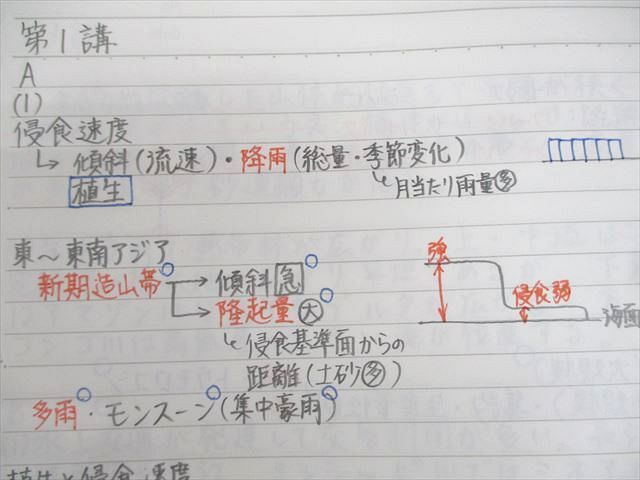 第1講
A
(1)
侵食速度
↳ 傾斜(流速)・降雨(総量・季節変化)
植生
↳月当たり雨量多
東〜東南アジア
新期造山帯 → 傾斜急
→ 隆起量大
↳ 侵食基準面からの
距離(土砂多)
強
侵食弱
海面
多雨・モンスーン(集中豪雨)
植生と侵食速度